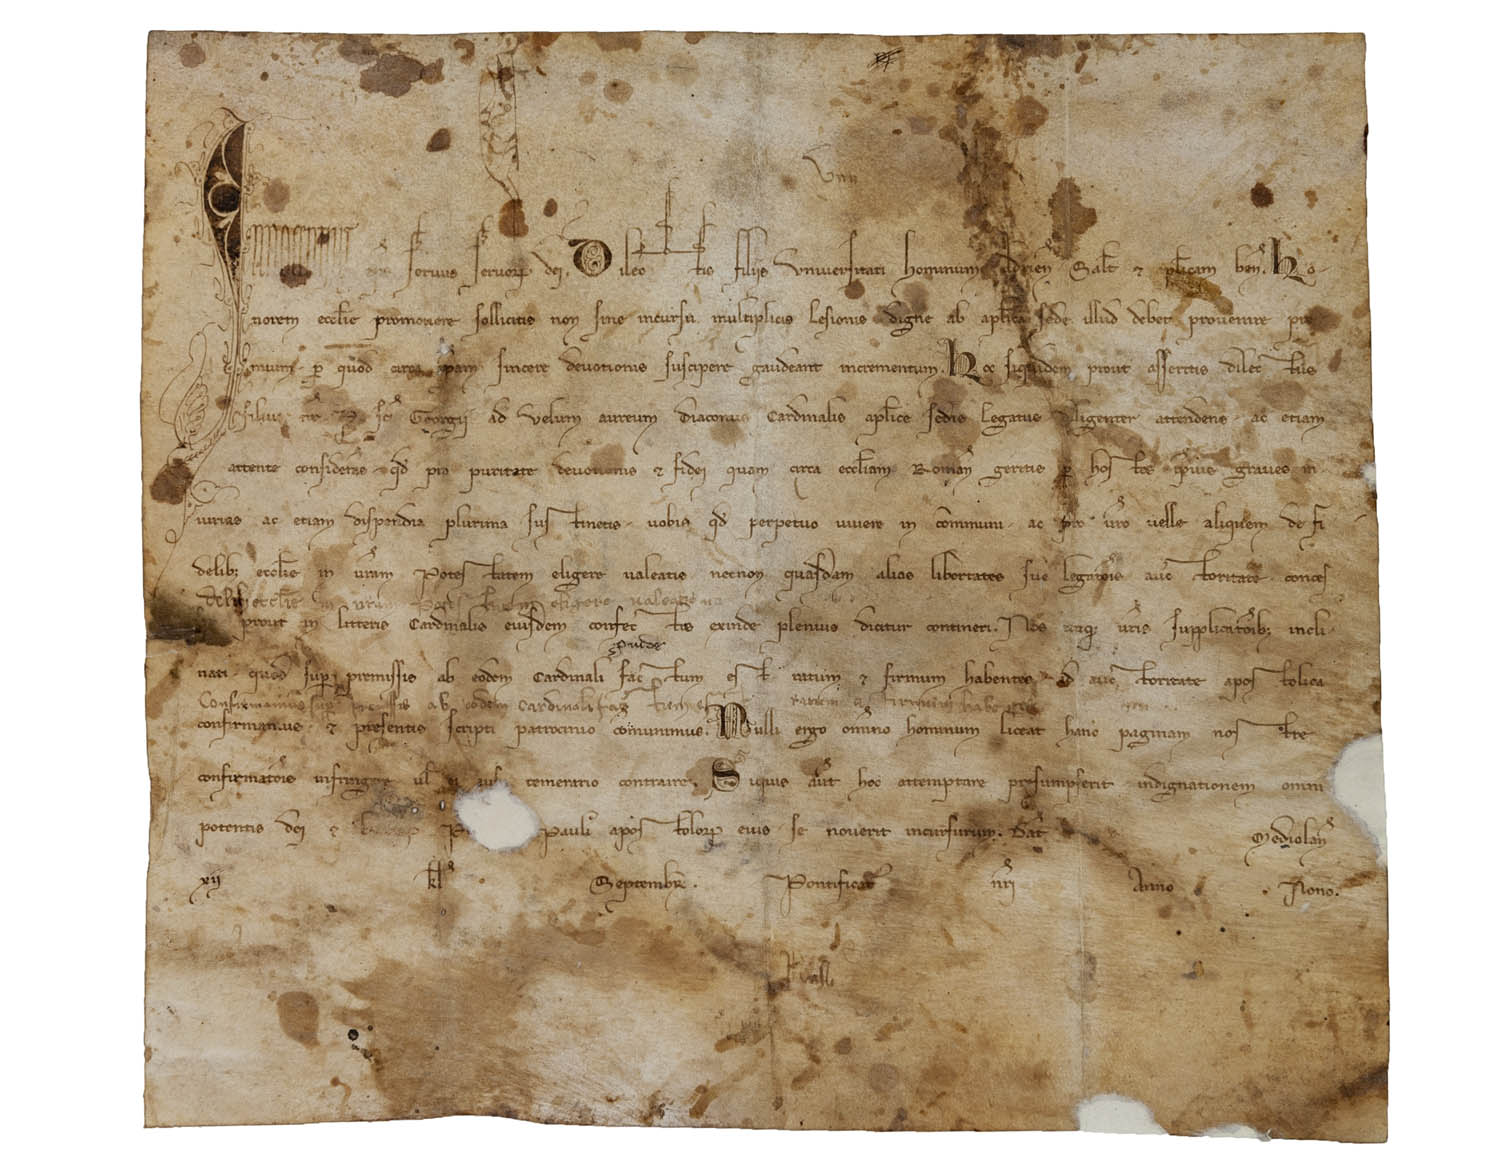 Unu
Innocentius ep̄s servus servorꝝ dei. Dilectis filiis Universitati hominum Adrien̄ Salt̄ ⁊ ap̄licam ben̄. Ho-
norem eccl̄ie promovere solliciti non sine incursu multiplicis lesionis digne ab ap̄lica Sede illud debet provenire pre
mium ꝑ quod circa ip̄am sincere devotionis suscipere gaudeant incrementum. Hoc siquidem prout asseritis dilectus
filius nr̄ Sc̄i Georgii ad velum aureum diaconus Cardinalis ap̄lice Sedis Legatus diligenter attendens ac etiam
attente considerans qd̄ pro puritate devotionis ⁊ fidei quam circa eccl̄iam Roman̄ geritis ꝑ hos t̄ps graves in
iurias ac etiam dispendia plurima sustinetis vobis qd̄ perpetuo vivere in communi ac pro vr̄o velle aliquem de fi
delibꝫ eccl̄ie in vr̄am Potestatem eligere valeatis necnon quasdam alias libertates sue legatōis auctoritate conces
delibꝫ eccl̄ie in vr̄am Potestatem eligere valeatis
prout in litteris Cardinalis eiusdem confectis exinde plenius dicitur contineri. Nos itaqꝫ vr̄is supplicatōibꝫ incli
nati quod suꝑ premissis ab eodem Cardinali factum est ratum ⁊ firmum habentes id auctoritate apostolica
Confirmamus suꝑ premissis ab eodem Cardinali factum est ratum ⁊ firmum habentes
confirmamus ⁊ presentis scripti patrocinio communimus. Nulli ergo om̄ino hominum liceat hanc paginam nostre
confirmatōis infringere ul̄ ei ausu temerario contraire. Siquis aut̄ hoc attemptare presumpserit indignationem omni
potentis dei ⁊ Pauli apostolorꝝ eius se noverit incursurum. Dat̄ Mediolan̄
xii kl̄ Septembr̄. Pontificat̄ nr̄i Anno Nono.